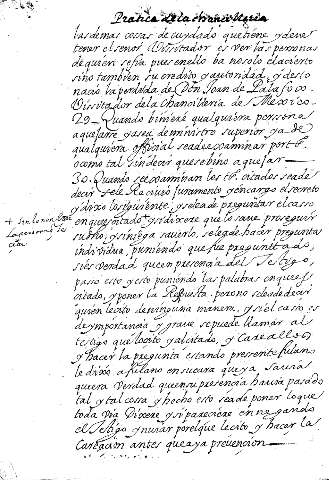 Pratica de la
las demas cosas de cuydado que tiene y deve
tener el señor Vissitador es ver las personas
de quien se fia pues en ello ba no solo el acierto
sino tambien su credito y autoridad, y desto
nacio la perdida de Don Joan de Palafox.
Vissitador de la Chancilleria de Mexico.
29. Quando biniere qualquiera perssona
a quejarse ya sea de ministro superior, ya de
qualquiera official se a de examinar por tº.
o como tal sin decir que se bino a quejar
30. Quando se examinan los tºs. citados se a de
decir se le Reciuio Juramento y encargo el secreto
y dixo lo siguiente, y se le a de preguntar el casso
en que es citado, y si dixere que lo save proseguir
su dho, y si niega saverlo, se le a de hacer pregunta
individua, puniendo que fue preguntado,
si es verdad que en presencia del Testigo,
passo esto y esto puniendo las palabras en que es
citado, y poner la Respuesta. pero no se le a de decir
quien le cito de ninguna manera, y si el casso es
de ymportancia y grave se puede llamar al
testigo que lo cito y al citado, y Carearllos
y hacer la pregunta estando pressente fulano
le dixo a fulano en su cara que ya savia
que era verdad que en su presencia havia passado
tal y tal cossa, y hecho esto se a de poner lo que
toda via Dixere y si pareciere en negando
el Testigo y nuiar por el que le cito, y hacer la
Careacion antes que aya prevencion
+ Se le
la persona
cita